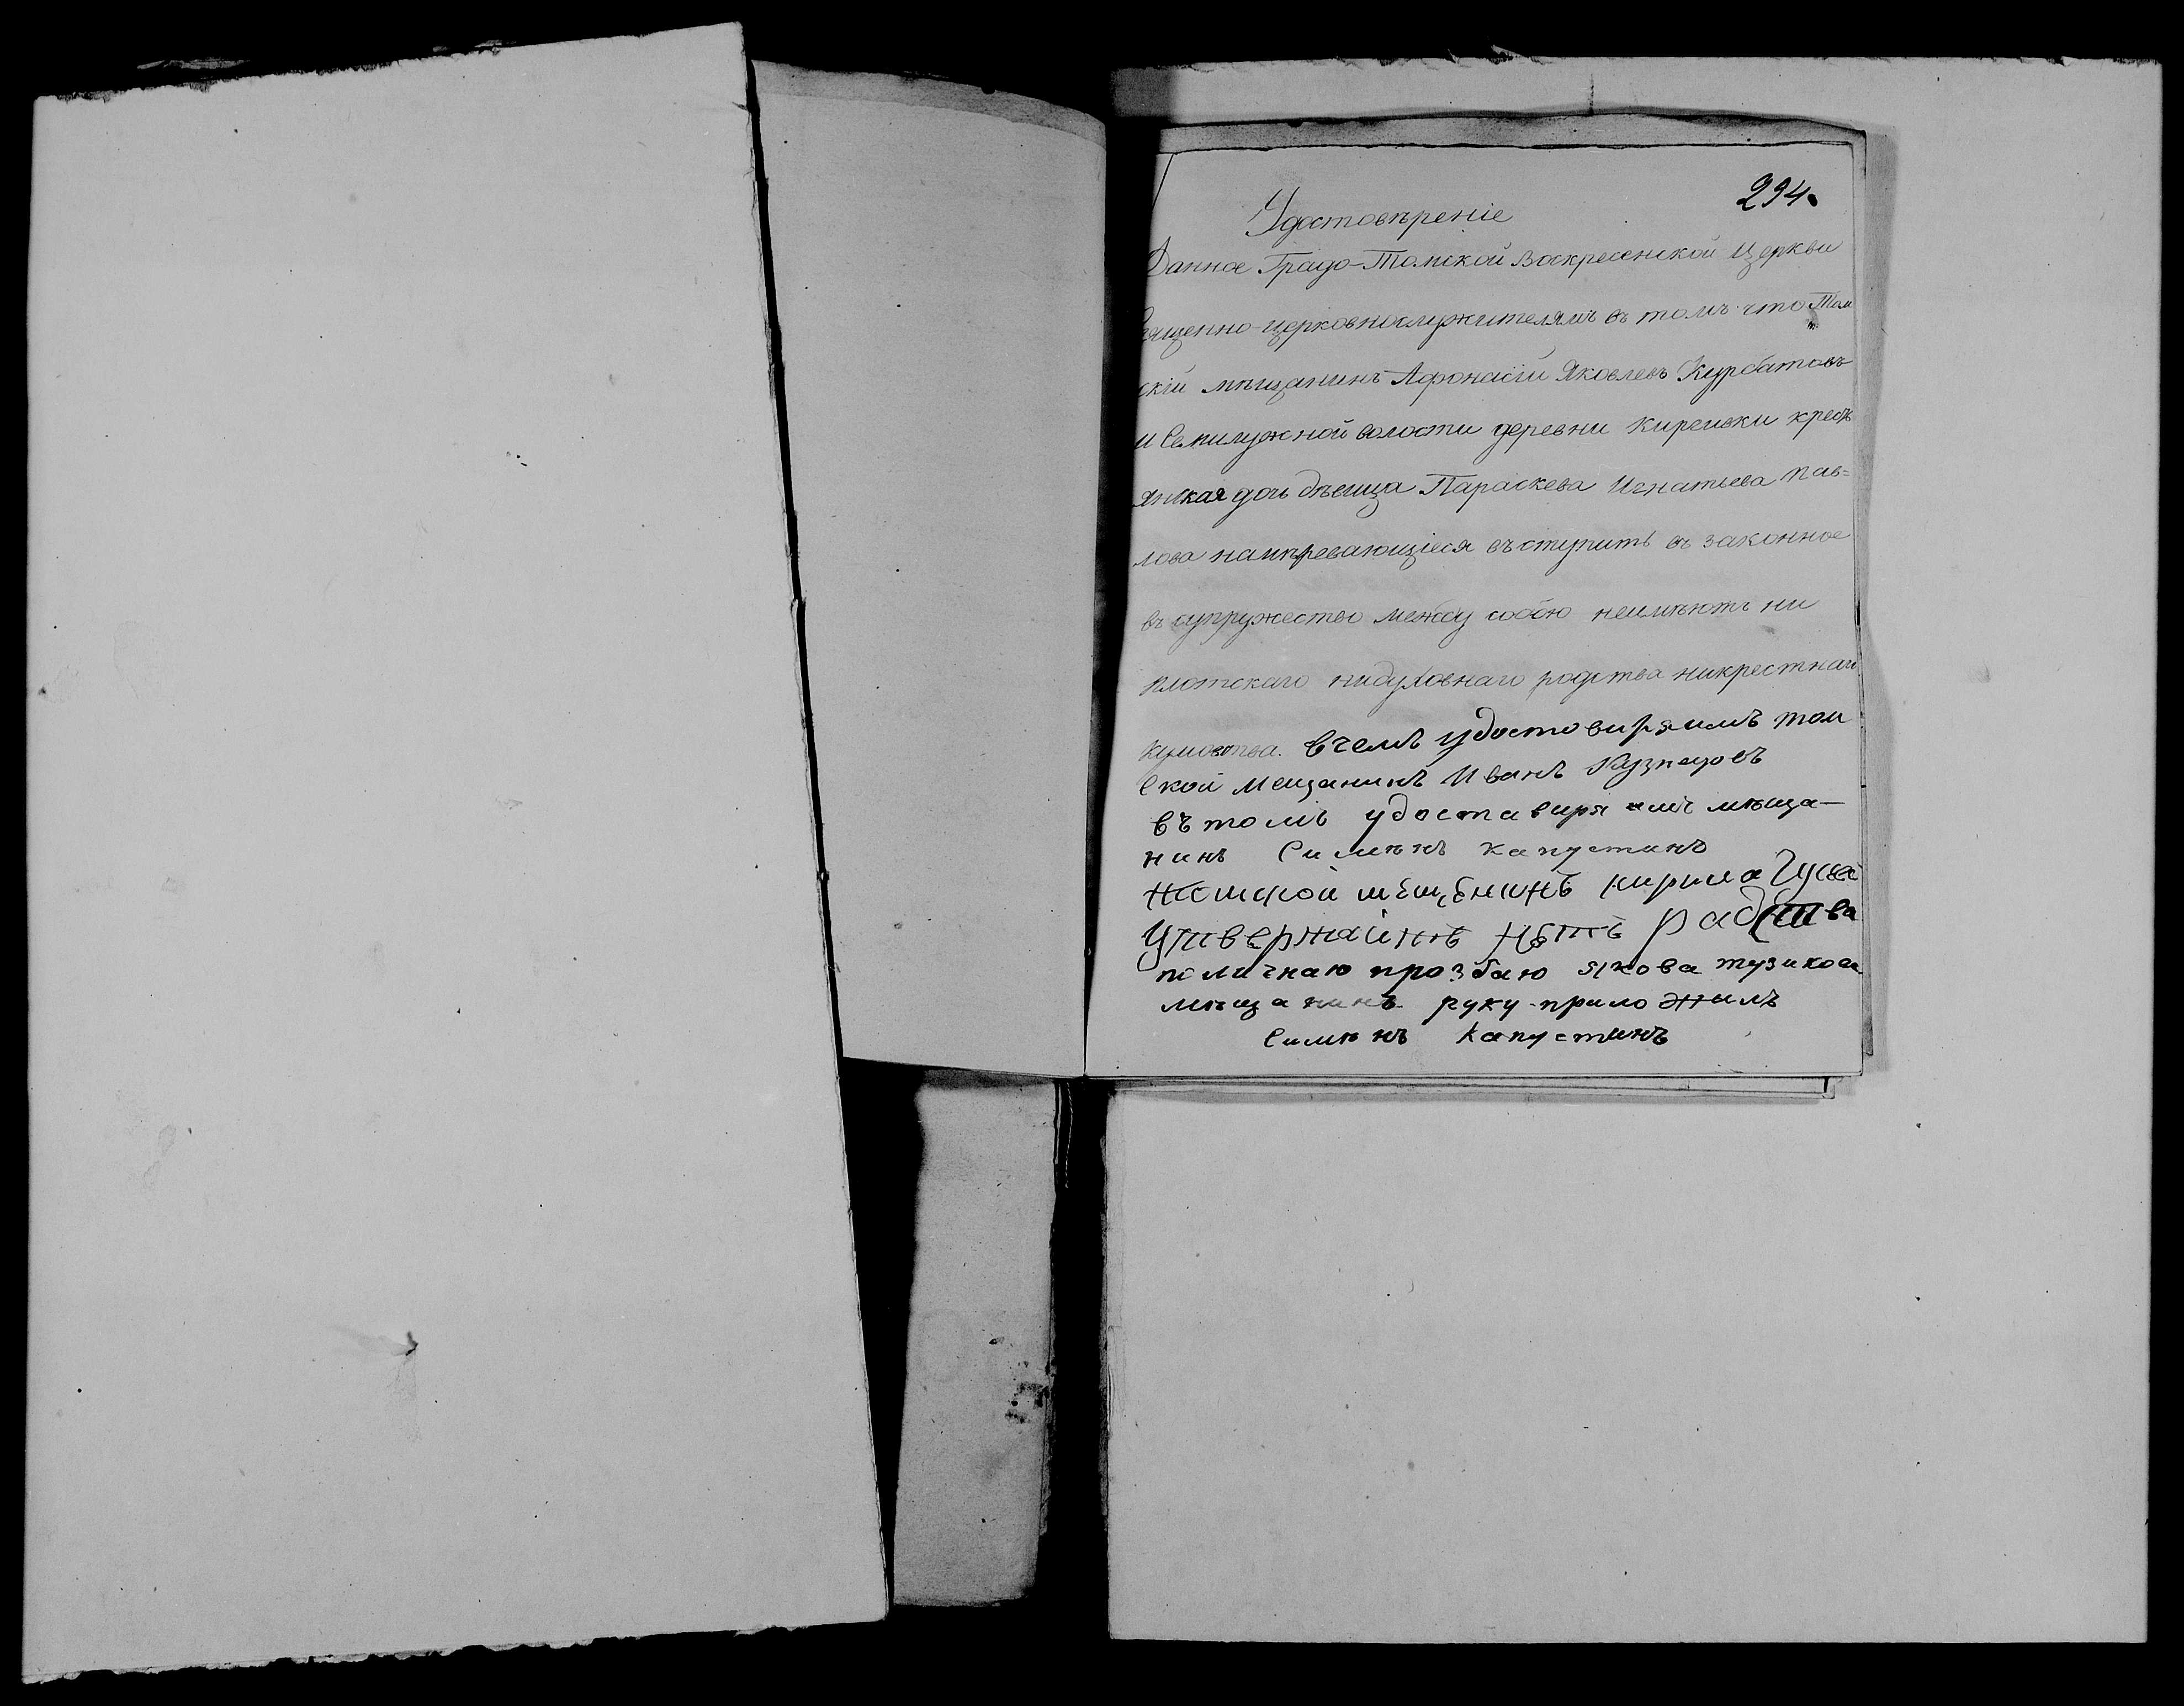 294.
Удостовѣреніе
Данное Градо-Томской Воскресенской Церкви
Священно-церковнослужителямъ въ томъ что Том
скій мѣщанинъ Афонасій Яковлевъ Курбатовъ
и Семилужной волости деревни Киргиски кресть
янская дочь дѣвица Параскева Игнатьева Пав=
лова намѣревающіеся въступить въ законное
въ супружество между собою неимѣютъ ни
плотскаго нидуховнаго родства никрестнаго
кумовства. вчемъ удостовиряимъ том
ской мещанинъ Иванъ Кузнецовъ
въ томъ удоставиряимъ мѣща-
нинъ Симѣнъ Капустинъ
томской мещенинъ кирила Гусев
Утвержаинъ нѣтъ радства
поличнаю прозбаю якова тузикова
мѣщанинъ руку приложилъ
Симѣнъ Капустинъ